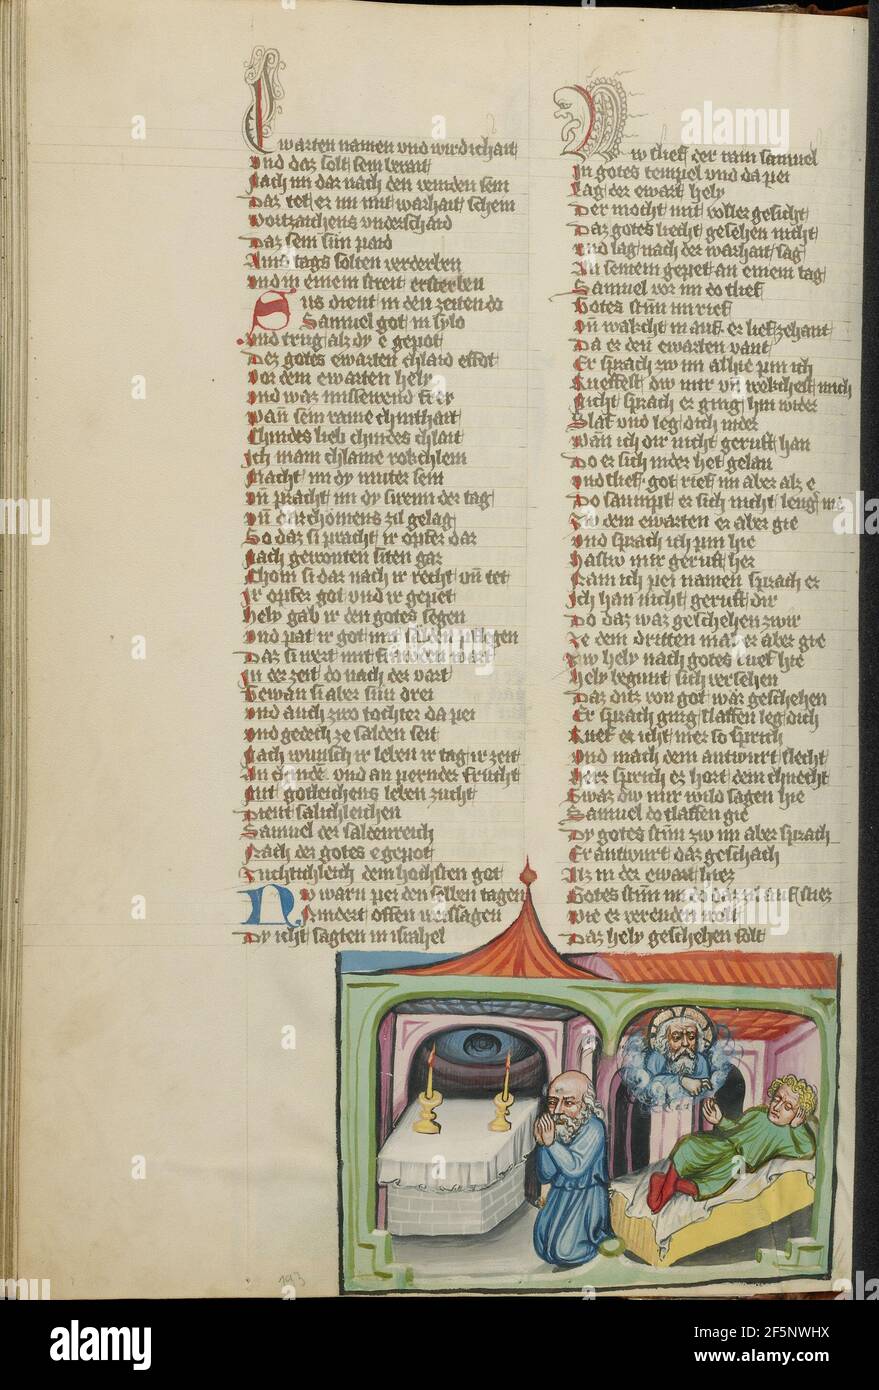 warten namen vnd wird ich alt
Vnd daz solt sein berait
Nach im dar nach den venden sein
Daz tet er im mit warhait schein
Wortzaichens vnderschaid
Daz sein sun paid
Ains tags solten verderben
Vnd in einem streit ersterben
Sus dient in den zeiten do
Samuel got in sylo
Vnd trug alz dy e gepot
Dez gotes ewarten chlaid effot
Vor dem ewarten hely
Vnd waz missewend frey
Wan sein raine chinthait
Chindes lieb chindes chlait
Ich main chlaine rokchlein
Macht im dy muter sein
Vn pracht im dy swenn der tag
Vn dar chomens zil gelag
So daz si pracht ir opfer dar
Nach gewonten siten gar
Chom si dar nach ir recht vn tet
Ir opfer got vnd ir gepet
Hely gab ir den gotes segen
Vnd pat ir got mit pflegen
Daz si wert mit wart
In der zeit do nach der vart
Gewan si aber sun drei
Vnd auch zwo tochter da pei
Vnd gedech ze salden seit
Nach wunsch ir leben ir tag ir zeit
An chinden vnd an pernder frucht
Mit gotleichens leben zucht
Dient salichleichen
Samuel der saldenreich
Nach der gotes e gepot
Zuchtichleich dem hochsten got
Nv warn pei den selben tagen
Nindert offen weissagen
Dy icht sagten in israhel
Nv slief der rain samuel
In gotes tempel vnd da pei
Lag der ewart hely
Der mocht mit voller gesicht
Daz gotes liecht gesehen nicht
Vnd lag nach der warhait sag
An seinem gepet an einem tag
Samuel vor im do slief
Gotes stim im rief
Vn wakcht in auf er lief zehant
Da er den ewarten vant
Er sprach zw im alhie pin ich
Rueffest dw mir vn wekchest mich
Nicht sprach er ging hin wider
Slaf vnd leg dich nider
Wan ich dir nicht geruft han
Do er sich nider het gelan
Vnd slief got rief im aber alz e
Do saumpt er sich nicht leng me
Zw dem ewarten er aber gie
Vnd sprach ich pin hie
Hastw mir geruft her
Nain ich pei namen sprach er
Ich han nicht geruft dir
Do daz waz geschehen zwir
Ze dem dritten mal er aber gie
Zw hely nach gotes ruef hie
Hely begunt sich versehen
Daz ditz von got wär geschehen
Er sprach ging slaffen leg dich
Ruef er icht mer so sprich
Vnd mach dem antwurt slecht
Herr sprich ez hort dein chnecht
Swaz dw mir wild sagen hie
Samuel do slaffen gie
Dy gotes stim zw im aber sprach
Er antwurt daz geschach
Alz in der ewart hiez
Gotes stim in do daz nicht auf stiez
Wie er verenden wolt
Daz hely geschehen solt
193
alamy
Image ID: 2F5NWHX
www.alamy.com